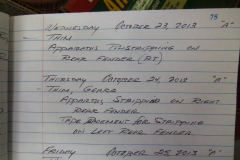 75
Wednesday October 23, 2013 "A"
Thim
Apparatus Pinstripping on
Rear Fender (RT)
Thursday October 24, 2013 "A"
Thim, Genke
Apparatus Stripping on Right
Rear Fender
Tape Placement for Stripping
on Left Rear Fender
Friday October 25, 2013 "A"